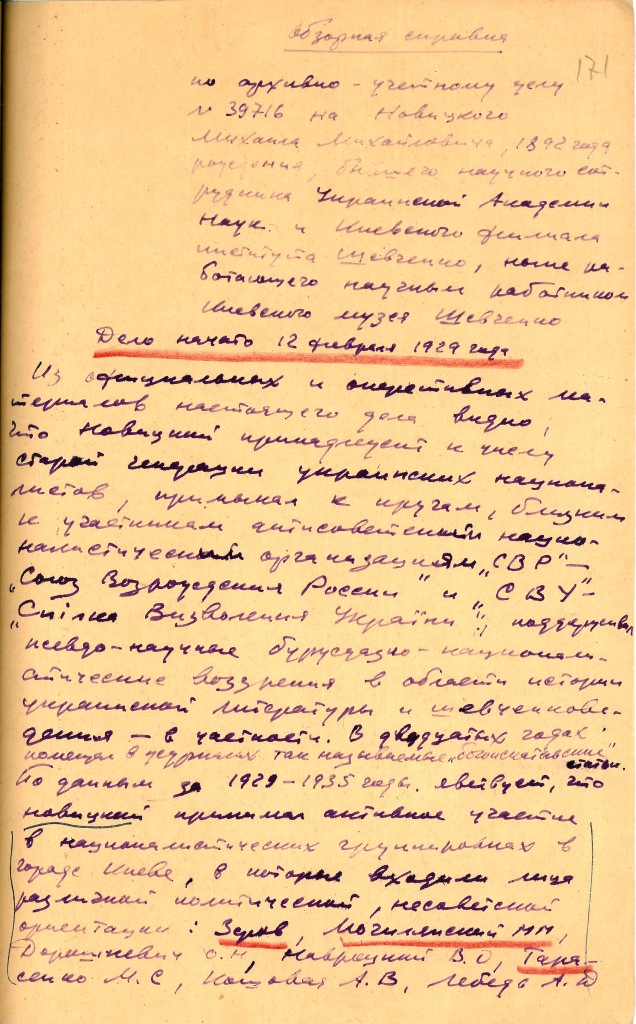 обзорная справка
171
по архивно-учетному делу
№ 39716 на Новицкого
Михаила Михайловича, 1892 года
рождения, бывшего научного сот-
рудника Украинской Академии
Наук и Киевского филиала
института Шевченко, ныне ра-
ботающего научным работником
Киевского музея Шевченко
Дело начато 12 февраля 1929 года
Из официальных и оперативных ма-
териалов настоящего дела видно,
что Новицкий принадлежит к числу
старой генерации украинских национа-
листов, примыкал к кругам, близким
к участникам антисоветский нацио-
налистический организациям „СВР"–
„Союз Возрождения России" и „СВУ"–
„Спілка Визволення України"; поддерживал
псевдо-научные буржуазно-национали-
стические воззрения в области истории
украинской литературы и шевченкове-
дения – в частности. В двадцатых годах
помещал в журналах так называемые
статьи.
По данным за 1929–1935 годы явствует, что
Новицкий принимал активное участие
в националистических группировках в
городе Киеве, в которые входили лица
различной политической, несоветской
ориентации: Зеров, Могилянский ММ,
Дорошкевич О.Н, Навроцкий В.О, Тара-
сенко М.С, Кошовая А.В, Лебедь А.Д